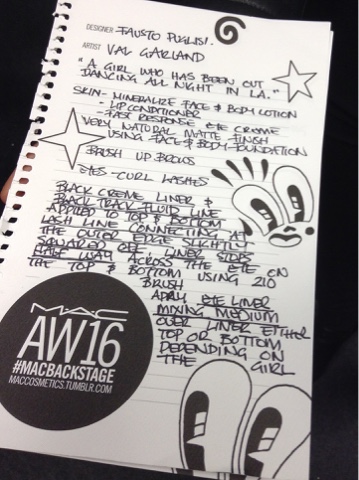 DESIGNER FAUSTO PUGLISI.
ARTIST VAL GARLAND
"A GIRL WHO HAS BEEN OUT
DANCING ALL NIGHT IN LA."
SKIN - MINERALIZE FACE & BODY LOTION
- LIP CONDITIONER
- FAST RESPONSE EYE CREME
VERY NATURAL MATTE FINISH
USING FACE & BODY FOUNDATION
BRUSH UP BROWS
EYES - CURL LASHES
BLACK CREME LINER &
BLACK TRACK FLUID LINE
APPLIED TO TOP & BOTTOM
LASH LINE CONNECTING AT
THE OUTER EDGE SLIGHTLY
SQUARED OFF. LINER STOPS
HALF WAY ACROSS THE EYE ON
THE TOP & BOTTOM USING 210
BRUSH
APPLY EYE LINER
MIXING MEDIUM
OVER LINER EITHER
TOP OR BOTTOM
DEPENDING ON
THE GIRL
MAC
AW16
#MACBACKSTAGE
MACCOSMETICS.TUMBLR.COM